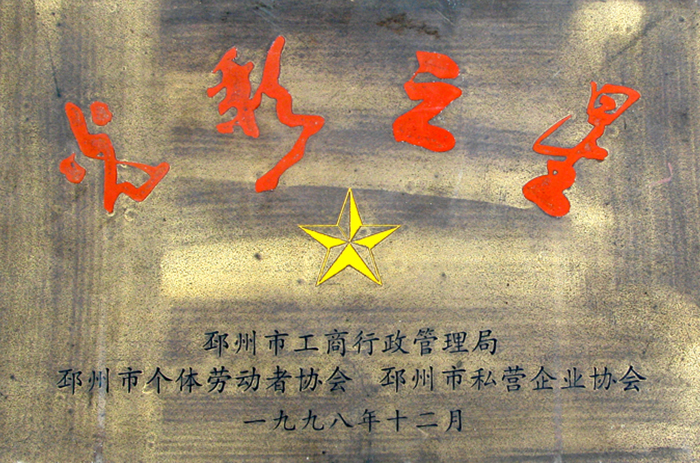 光彩之星
邳州市工商行政管理局
邳州市个体劳动者协会 邳州市私营企业协会
一九九八年十二月